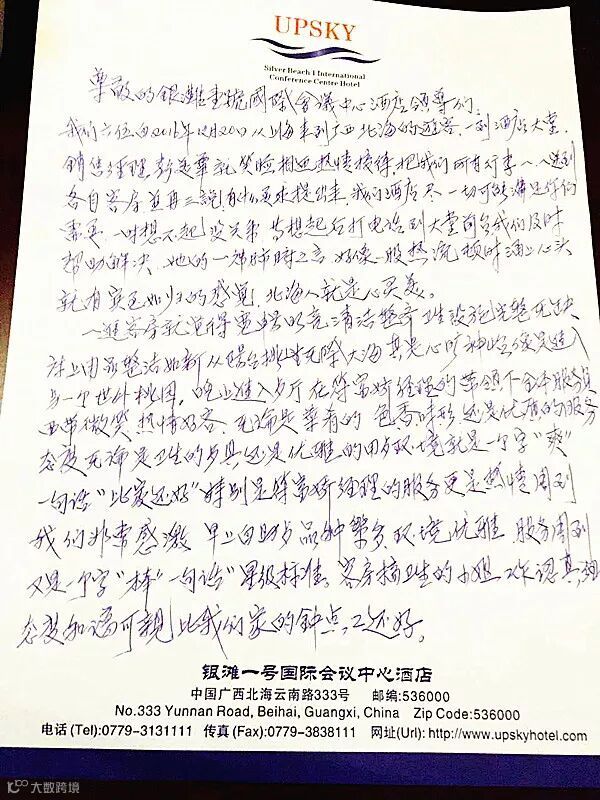 UPSKY
Silver Beach 1 International
Conference Centre Hotel
尊敬的银滩壹号國際會議中心酒店领导们:
我们六位自2016年12月20日从上海来到广西北海的游客,一到酒店大堂,
销售经理彭是覃就笑脸相迎热情接待,把我们所有行李一一送到
各自客房并再三說有什么要求提出来,我们酒店尽一切可能满足你们
需要,一时想不起没关系,等想起后打电话到大堂前台我们及时
帮助解决,她的一席肺腑之言好像一股热流顿时涌上心头
就有宾至如归的感覚,北海人就是心灵美。
一进客房就觉得宽敞明亮清洁整齐卫生设施完整无缺
床上用品整洁如新从陽台眺望无际大海真是心旷神怡彷彿是进入
另一个世外桃园,晚上进入歺厅在符富娇经理的带领下全体服务员
面带微笑,热情好客、无论是菜肴的色香味形还是优质的服务
态度无论是卫生的歺具还是优雅的用歺环境就是一个字"爽"
一句话"比家还好"特别是符富娇经理的服务更是热情周到
我们非常感激 早上自助歺品种繁多,环境优雅,服务周到
又是一个字"棒"一句话"星级标准,客房搞卫生的小姐工作認真,
态度和谒可親比我们家的钟点工还好。
银滩一号国际会议中心酒店
中国广西北海云南路333号 邮编:536000
No.333 Yunnan Road, Beihai, Guangxi, China Zip Code:536000
电话(Tel):0779-3131111 传真(Fax):0779-3838111 网址(Url): http://www.upskyhotel.com
大数跨境